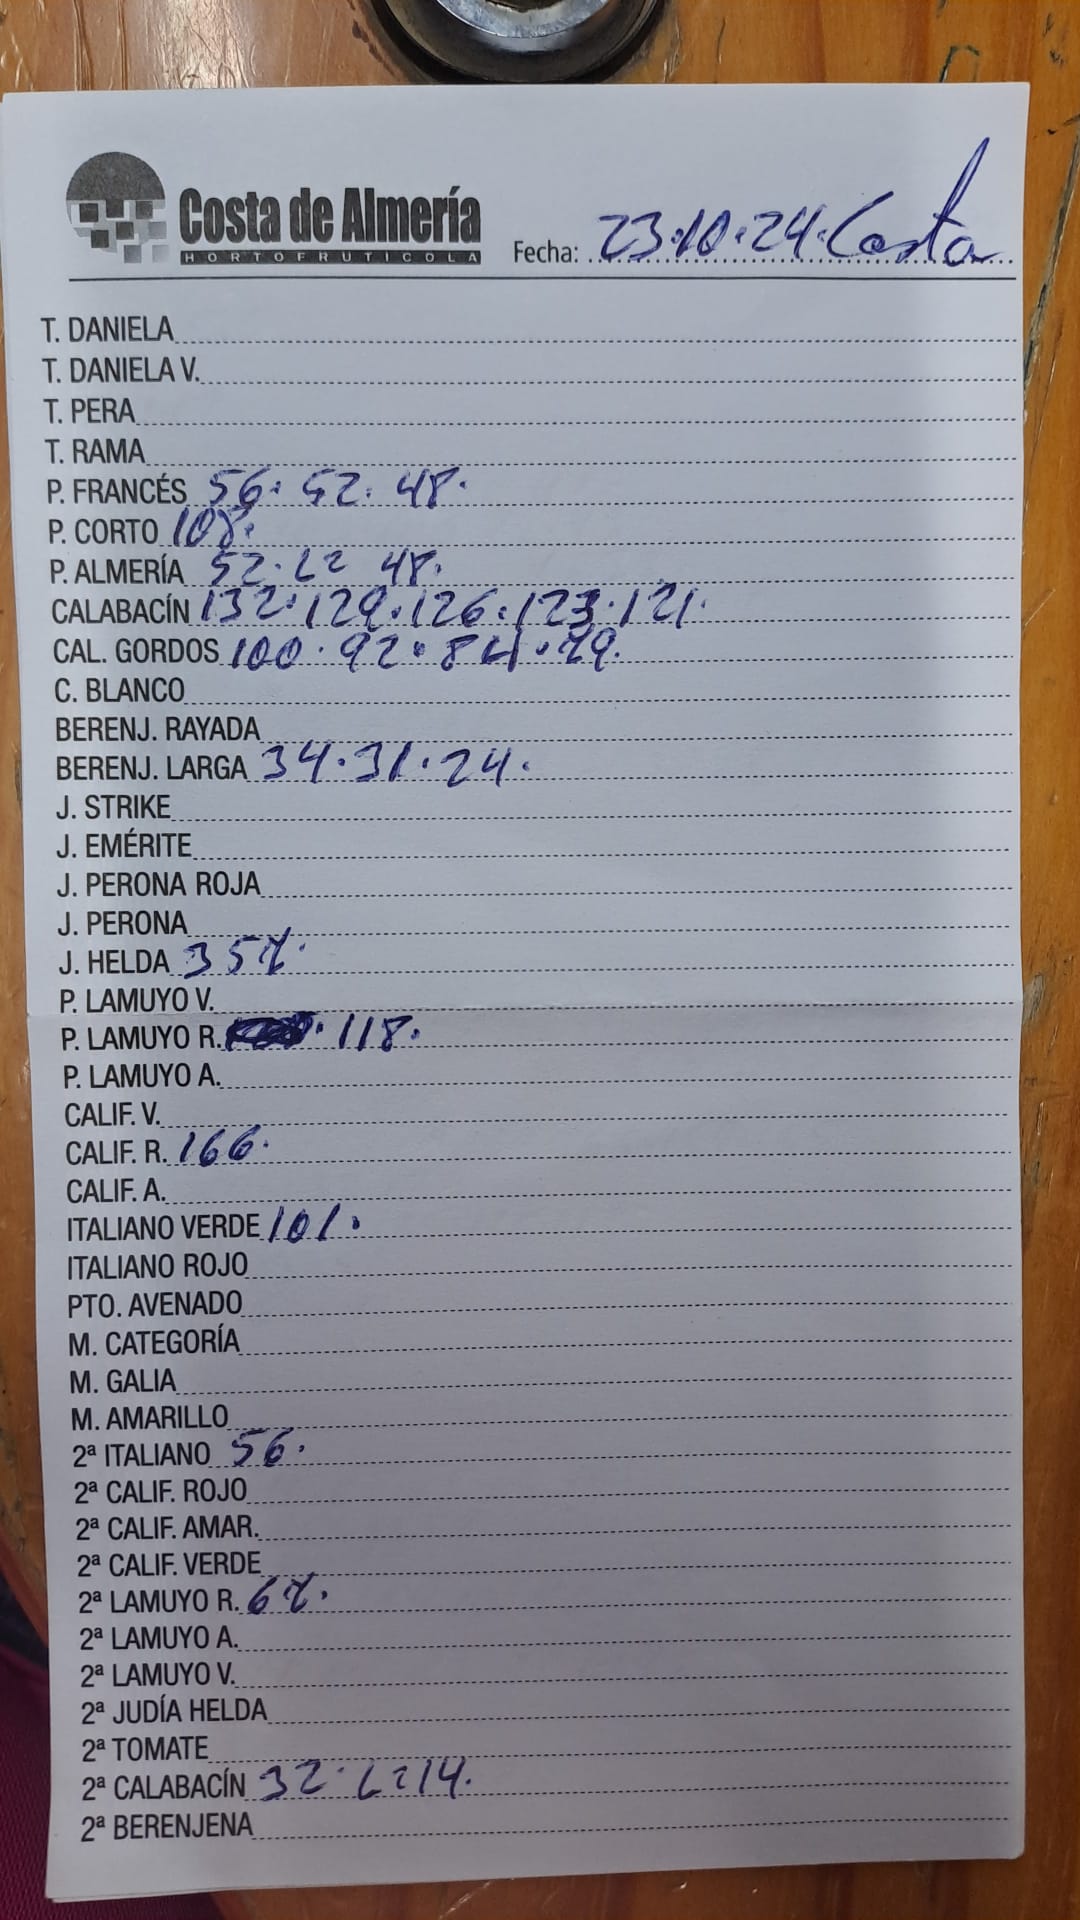 Costa de Almería
HORTOFRUTICOLA
Fecha: 23.10.24. Costa
T. DANIELA
T. DANIELA V.
T. PERA
T. RAMA
P. FRANCÉS 56. 52. 48.
P. CORTO 108.
P. ALMERÍA 52. L2 48.
CALABACÍN 132. 129. 126. 123. 121.
CAL. GORDOS 100. 92. 84.
C. BLANCO
BERENJ. RAYADA
BERENJ. LARGA 34. 31. 24.
J. STRIKE
J. EMÉRITE
J. PERONA ROJA
J. PERONA
J. HELDA
P. LAMUYO V.
P. LAMUYO R. 118.
P. LAMUYO A.
CALIF. V.
CALIF. R. 166.
CALIF. A.
ITALIANO VERDE 101.
ITALIANO ROJO
PTO. AVENADO
M. CATEGORÍA
M. GALIA
M. AMARILLO
2ª ITALIANO 56.
2ª CALIF. ROJO
2ª CALIF. AMAR.
2ª CALIF. VERDE
2ª LAMUYO R.
2ª LAMUYO A.
2ª LAMUYO V.
2ª JUDÍA HELDA
2ª TOMATE
2ª CALABACÍN 32. L2 14.
2ª BERENJENA